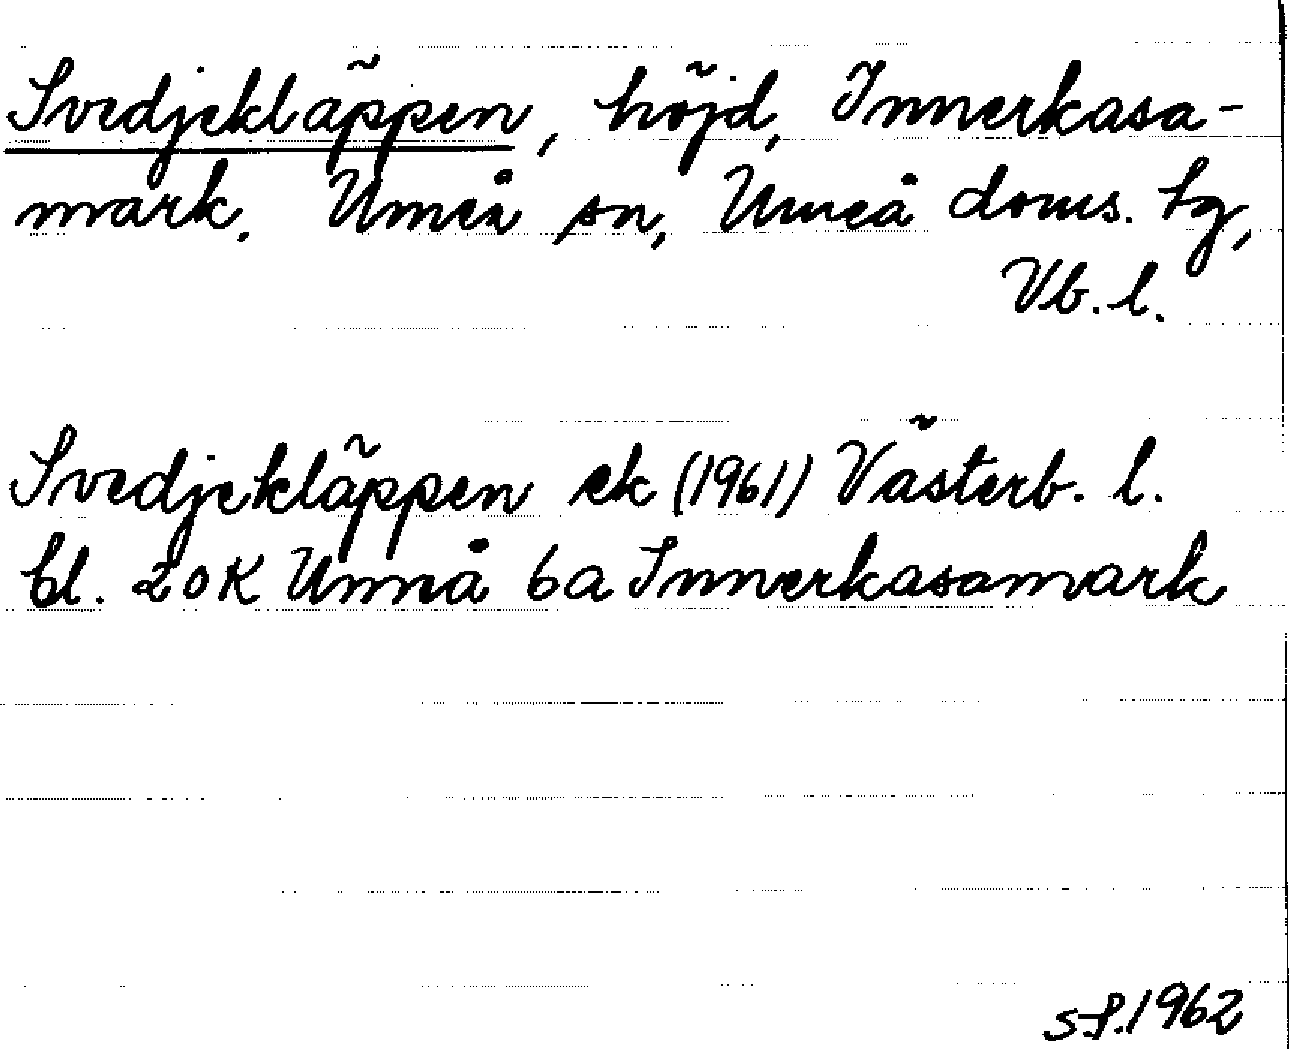 Svedjekläppen, höjd, Innerkasa-
mark. Umeå sn, Umeå doms. tg,
Vb. l.
Svedjekläppen ek (1961) Västerb. l.
bl. 20K Umeå 6a Innerkasamark
1962